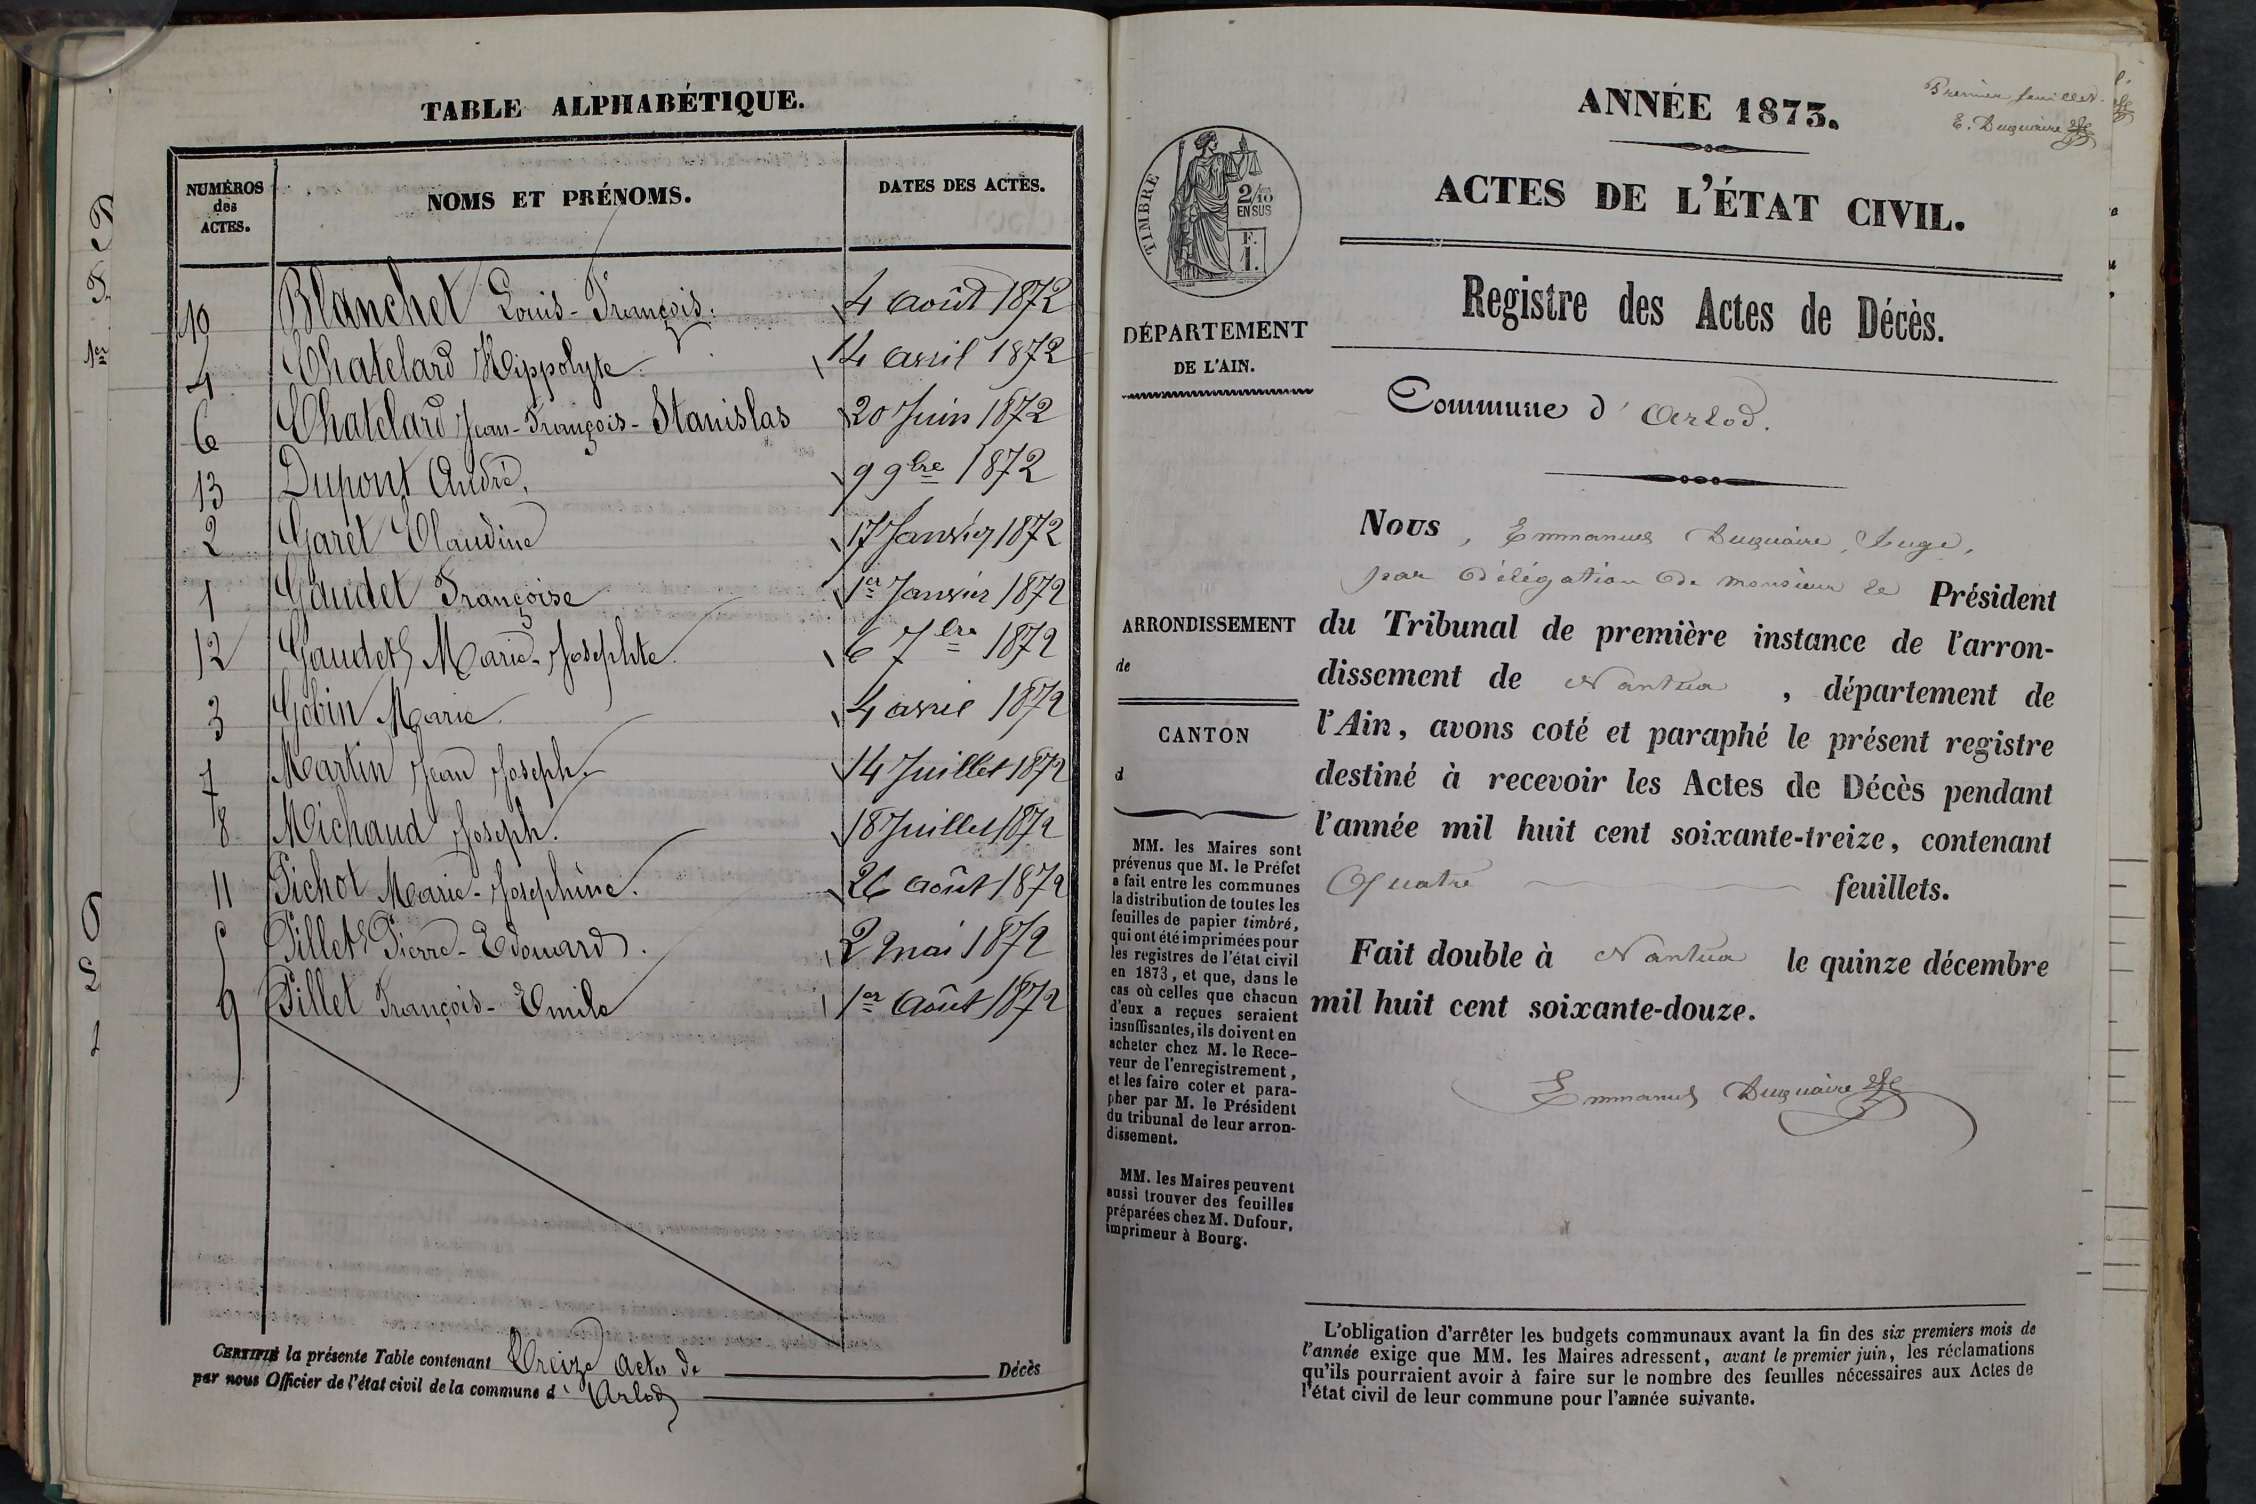 TABLE ALPHABÉTIQUE.
NUMÉROS
des
ACTES.
NOMS ET PRÉNOMS.
DATES DES ACTES.
10 Blanchet Louis-François. 4 août 1872
4 Chatelard Hippolyte. 14 avril 1872
6 Chatelard Jean-François-Stanislas 20 Juin 1872
13 Dupont André, 9 9bre 1872
2 Garet Claudine 17 Janvier 1872
1 Gaudet Françoise 1er Janvier 1872
12 Gaudet Marie-Josephte. 6 7bre 1872
3 Gobin Marie. 4 avril 1872
7 Martin Jean Joseph. 14 Juillet 1872
8 Michaud Joseph. 18 Juillet 1872
11 Pichot Marie-Josephine. 26 août 1872
5 Pillet Pierre-Edouard. 2 mai 1872
9 Pillet François-Emile 1er Août 1872
CERTIFIÉ la présente Table contenant Treize actes de Décès
par nous Officier de l'état civil de la commune d' Arlod
Premier feuillet.
E. Duquaire
ANNÉE 1873.
ACTES DE L'ÉTAT CIVIL.
TIMBRE
2/10
EN SUS
F.
1.
DÉPARTEMENT
DE L'AIN.
Registre des Actes de Décès.
Commune d' Arlod.
Nous, Emmanuel Duquaire, Juge,
par délégation de monsieur le Président
du Tribunal de première instance de l'arron-
dissement de Nantua, département de
l'Ain, avons coté et paraphé le présent registre
destiné à recevoir les Actes de Décès pendant
l'année mil huit cent soixante-treize, contenant
Quatre feuillets.
Fait double à Nantua le quinze décembre
mil huit cent soixante-douze.
Emmanuel Duquaire
ARRONDISSEMENT
de
CANTON
d
MM. les Maires sont
prévenus que M. le Préfet
a fait entre les communes
la distribution de toutes les
feuilles de papier timbré,
qui ont été imprimées pour
les registres de l'état civil
en 1873, et que, dans le
cas où celles que chacun
d'eux a reçues seraient
insuffisantes, ils doivent en
acheter chez M. le Rece-
veur de l'enregistrement,
et les faire coter et para-
pher par M. le Président
du tribunal de leur arron-
dissement.
MM. les Maires peuvent
aussi trouver des feuilles
préparées chez M. Dufour,
imprimeur à Bourg.
L'obligation d'arrêter les budgets communaux avant la fin des six premiers mois de
l'année exige que MM. les Maires adressent, avant le premier juin, les réclamations
qu'ils pourraient avoir à faire sur le nombre des feuilles nécessaires aux Actes de
l'état civil de leur commune pour l'année suivante.